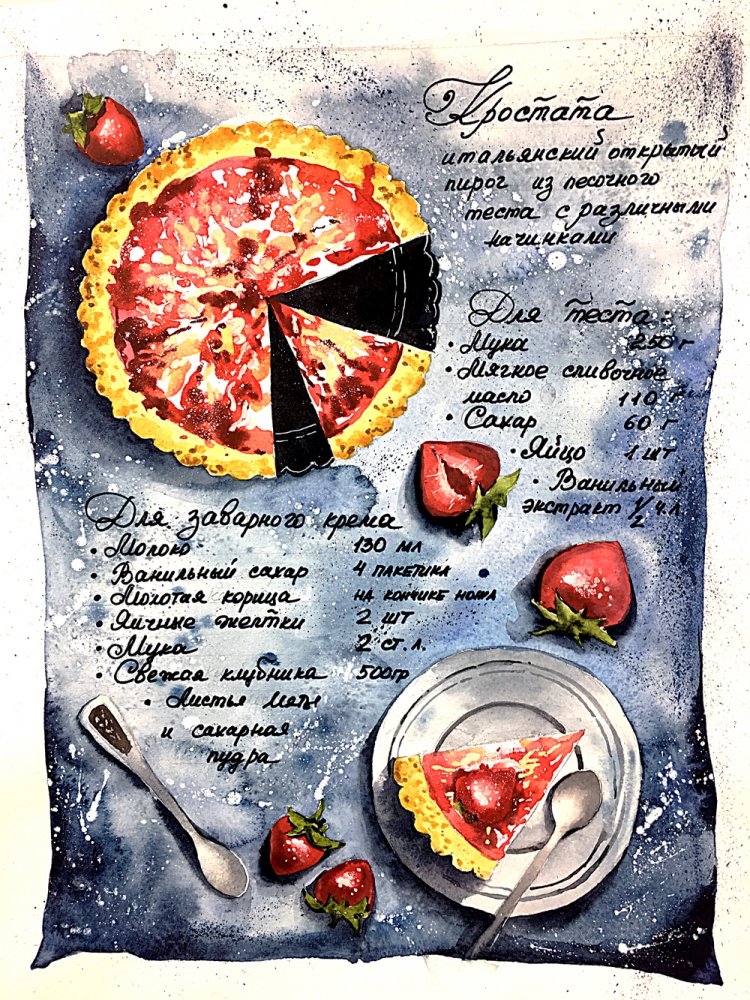 Кростата
итальянский открытый
пирог из песочного
теста с различными
начинками
Для теста:
• Мука 250 г
• Мягкое сливочное
масло 110 г
• Сахар 60 г
• Яйцо 1 шт
• Ванильный
экстракт 1/2 ч.л.
Для заварного крема
• Молоко 130 мл
• Ванильный сахар 4 пакетика
• Молотая корица на кончике ножа
• Яичные желтки 2 шт
• Мука 2 ст. л.
• Свежая клубника 500гр
• Листья мяты
и сахарная
пудра